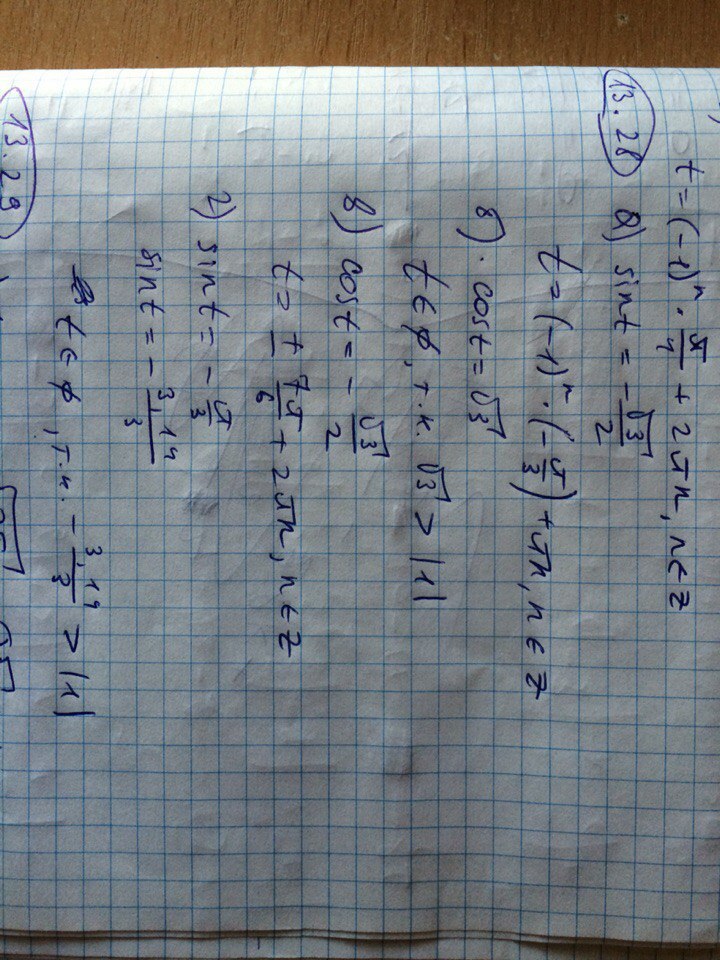 t = (-1)ⁿ · π/4 + 2πn, n ∈ Z
13.28
а) sin t = -√3/2
t = (-1)ⁿ · (-π/3) + πn, n ∈ Z
б) · cos t = √3
t ∈ ∅, т.к. √3 > |1|
в) cos t = -√3/2
t = ± 7π/6 + 2πn, n ∈ Z
г) sin t = -π/3
sin t = -3,14/3
t ∈ ∅, т.к. -3,14/3 > |1|
13.29